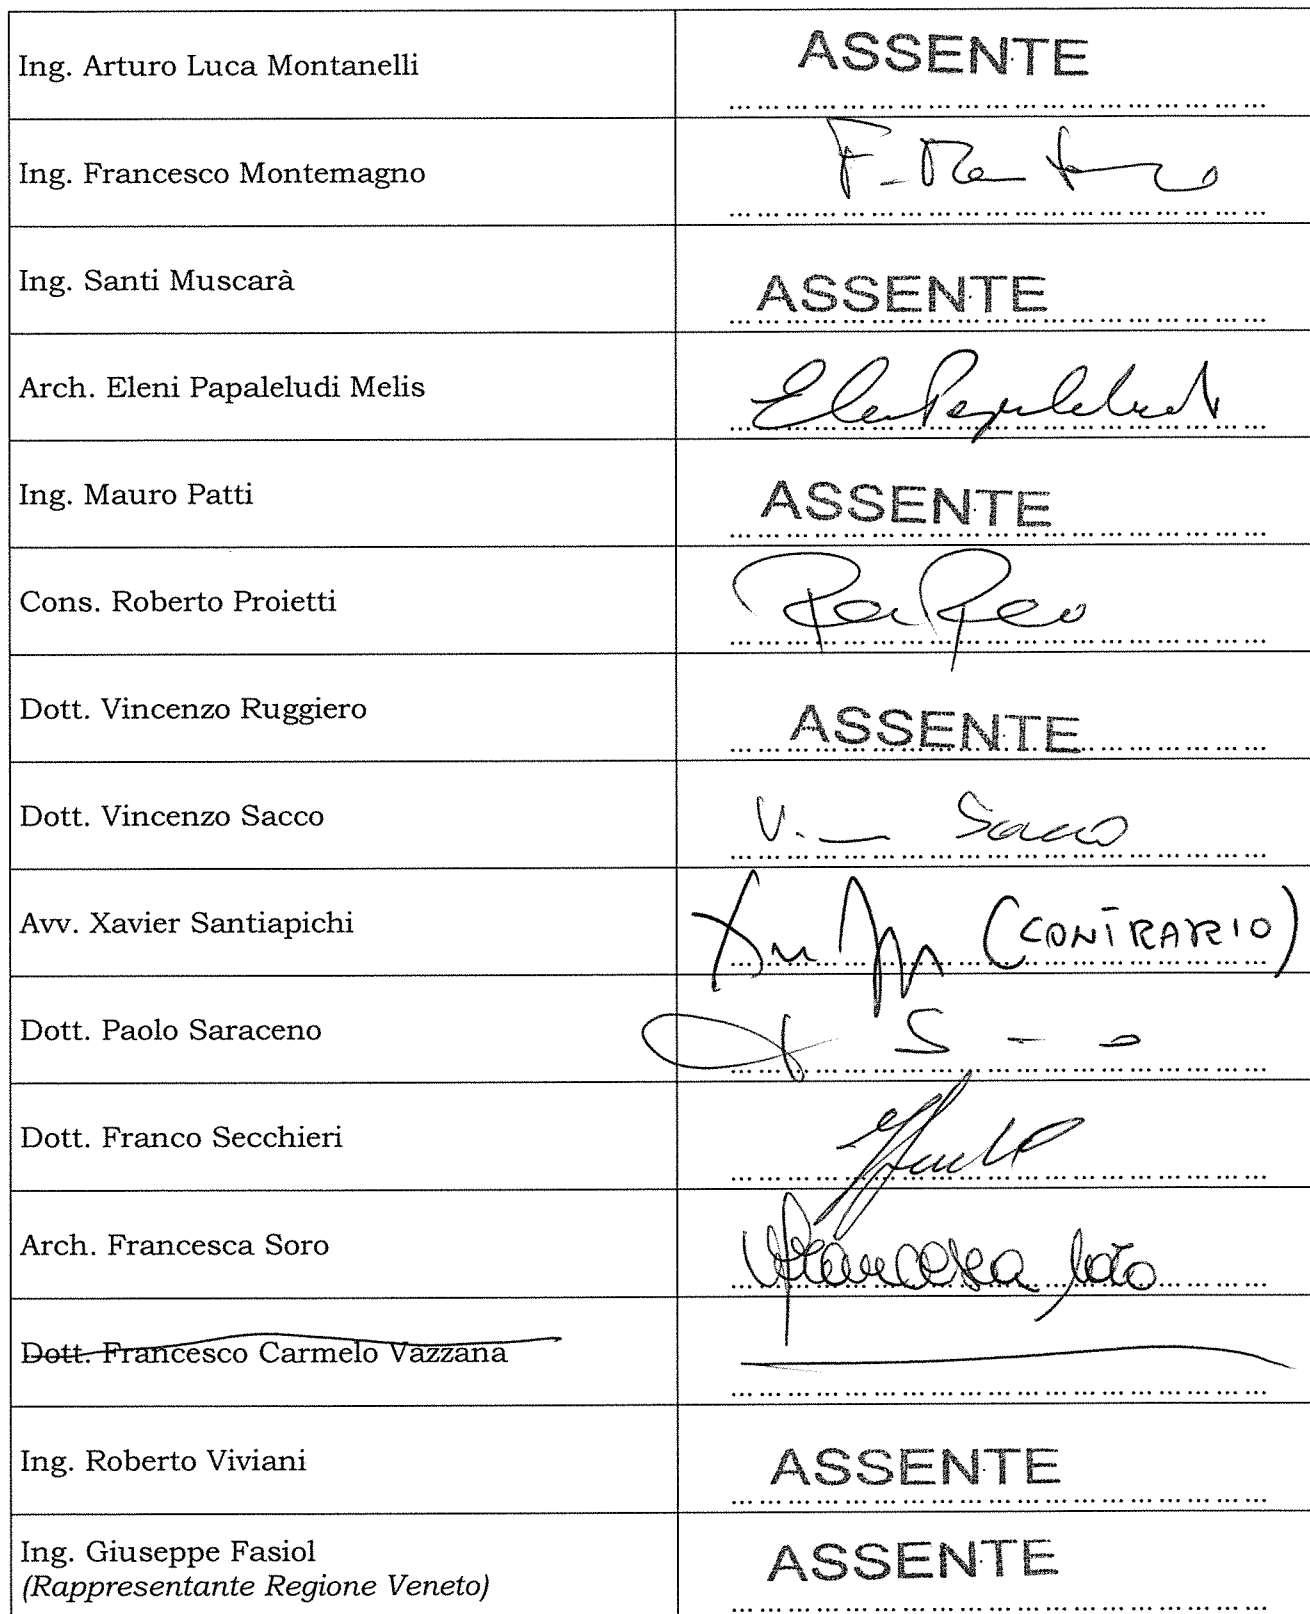 Ing. Arturo Luca Montanelli ASSENTE
Ing. Francesco Montemagno
Ing. Santi Muscarà ASSENTE
Arch. Eleni Papaleludi Melis
Ing. Mauro Patti ASSENTE
Cons. Roberto Proietti
Dott. Vincenzo Ruggiero ASSENTE
Dott. Vincenzo Sacco V. Sacco
Avv. Xavier Santiapichi (CONTRARIO)
Dott. Paolo Saraceno
Dott. Franco Secchieri
Arch. Francesca Soro Francesca Soro
Dott. Francesco Carmelo Vazzana
Ing. Roberto Viviani ASSENTE
Ing. Giuseppe Fasiol ASSENTE
(Rappresentante Regione Veneto)